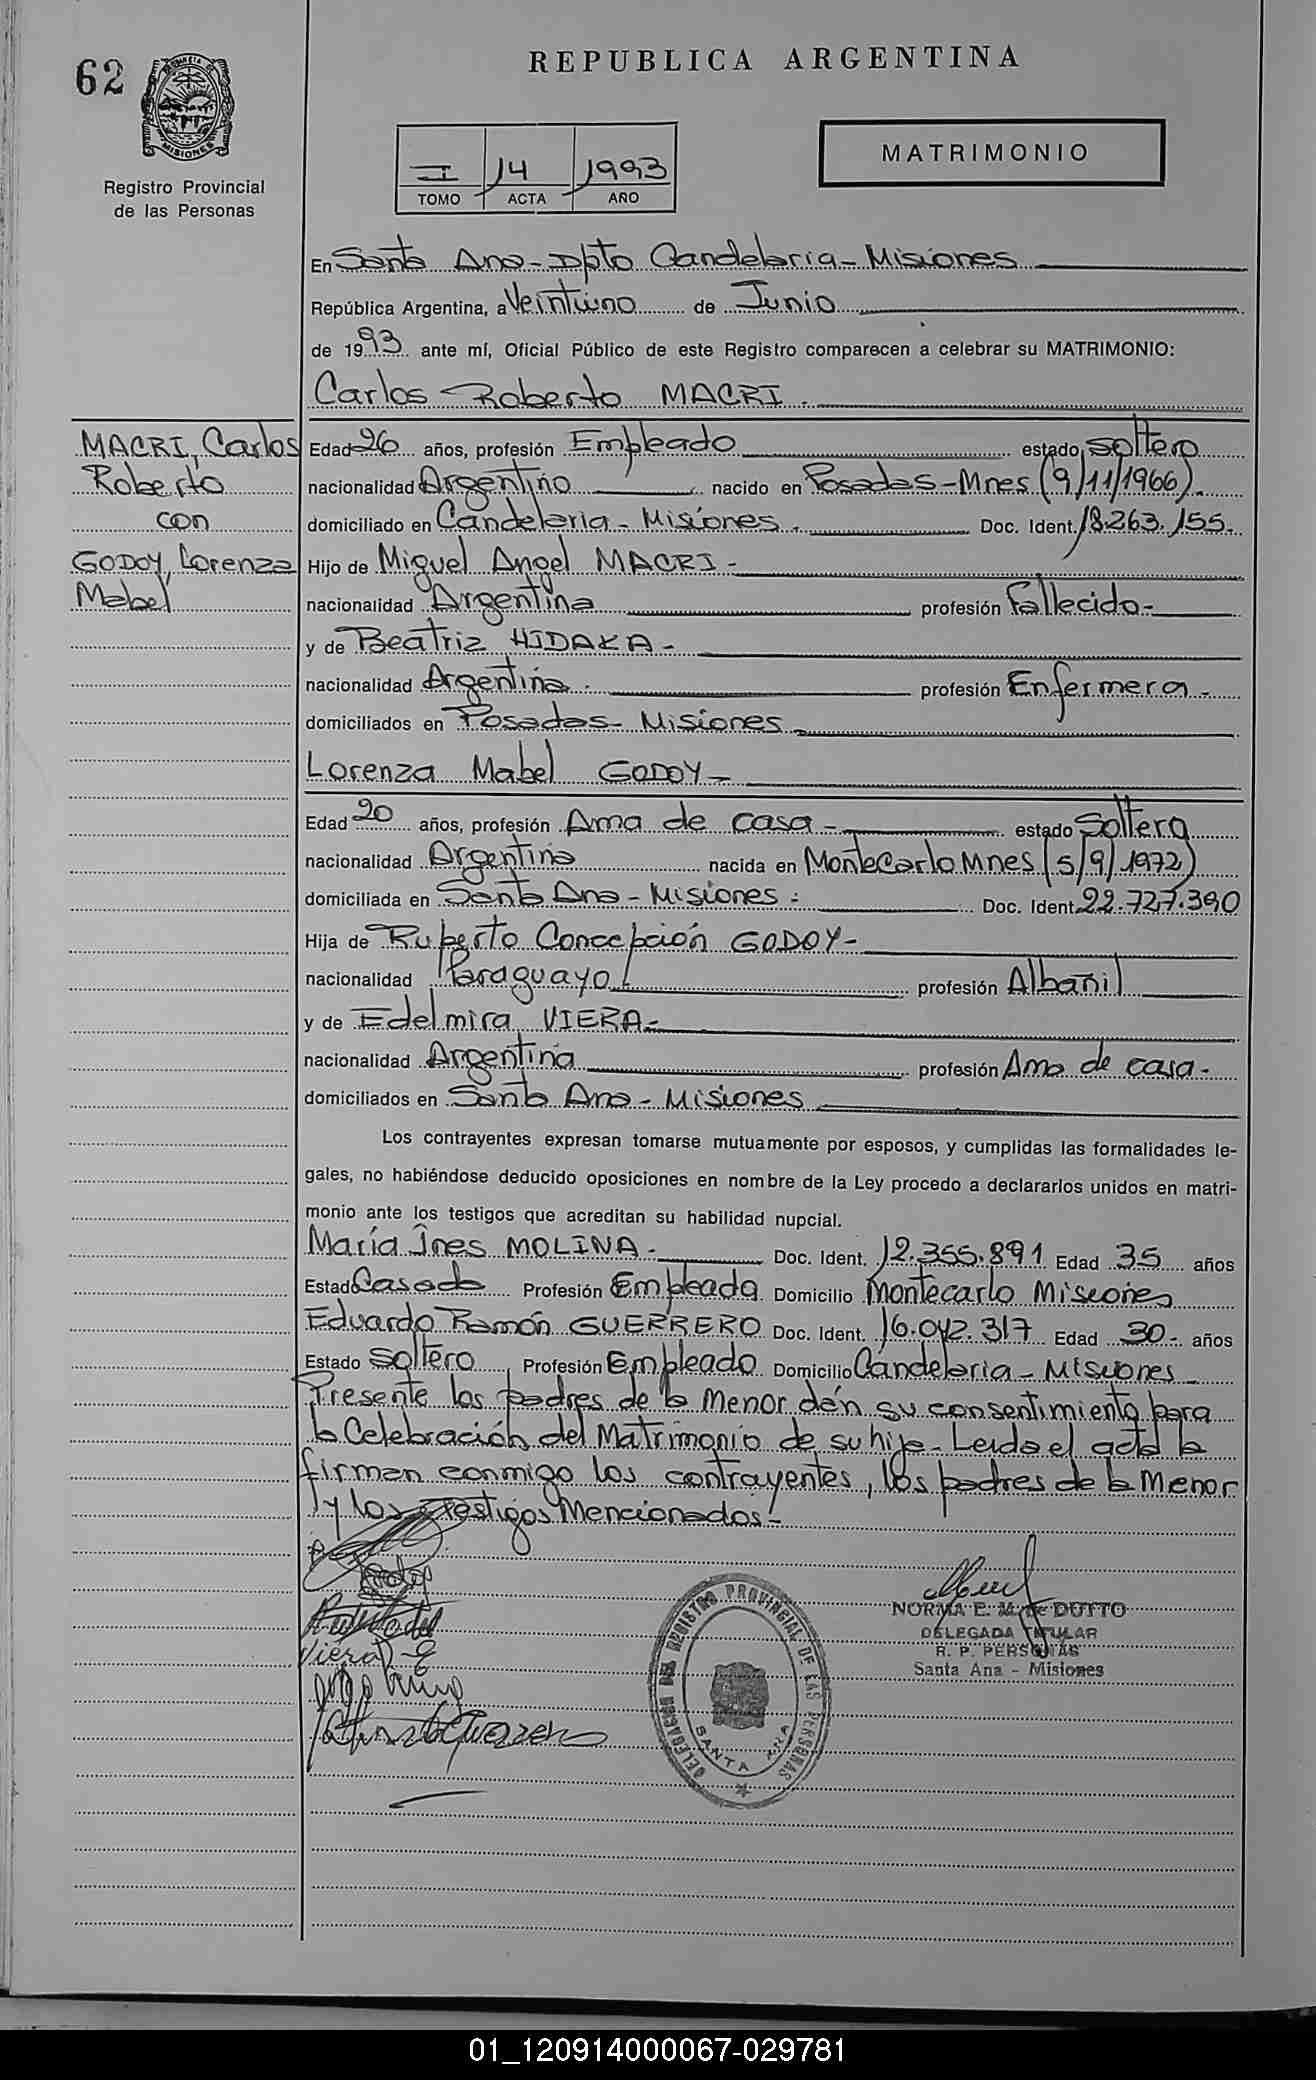 62
REPUBLICA ARGENTINA
MISIONES
Registro Provincial
de las Personas
I 14 1993
TOMO ACTA AÑO
MATRIMONIO
En Santa Ana - Dpto Candelaria - Misiones
República Argentina, a Veintiuno de Junio
de 1993 ante mí, Oficial Público de este Registro comparecen a celebrar su MATRIMONIO:
Carlos Roberto MACRI.
MACRI, Carlos
Roberto
con
GODOY, Lorenza
Mabel
Edad 26 años, profesión Empleado estado soltero
nacionalidad Argentino nacido en Posadas - Mnes (9/11/1966).
domiciliado en Candelaria - Misiones. Doc. Ident. 18.263.155.
Hijo de Miguel Angel MACRI -
nacionalidad Argentina profesión Fallecido -
y de Beatriz HIDAKA -
nacionalidad Argentina. profesión Enfermera -
domiciliados en Posadas - Misiones
Lorenza Mabel GODOY -
Edad 20 años, profesión Ama de casa - estado Soltera
nacionalidad Argentina nacida en Montecarlo Mnes (5/9/1972)
domiciliada en Santa Ana - Misiones - Doc. Ident. 22.727.390
Hija de Ruperto Concepción GODOY -
nacionalidad Paraguayo profesión Albañil
y de Edelmira VIERA -
nacionalidad Argentina profesión Ama de casa -
domiciliados en Santa Ana - Misiones
Los contrayentes expresan tomarse mutuamente por esposos, y cumplidas las formalidades le-
gales, no habiéndose deducido oposiciones en nombre de la Ley procedo a declararlos unidos en matri-
monio ante los testigos que acreditan su habilidad nupcial.
María Ines MOLINA - Doc. Ident. 12.355.891 Edad 35 años
Estado Casada Profesión Empleada Domicilio Montecarlo Misiones
Eduardo Ramón GUERRERO Doc. Ident. 16.042.317 Edad 30 - años
Estado soltero Profesión Empleado Domicilio Candelaria - Misiones -
Presente los padres de la Menor dén su consentimiento para
la Celebración del Matrimonio de su hija - Leida el acta la
firman conmigo los contrayentes, los padres de la Menor
y los testigos Mencionados -
Viera E
Guerrero
DELEGACION DEL REGISTRO PROVINCIAL DE LAS PERSONAS
SANTA ANA
NORMA E. M. de DUTTO
DELEGADA TITULAR
R. P. PERSONAS
Santa Ana - Misiones
01_120914000067-029781